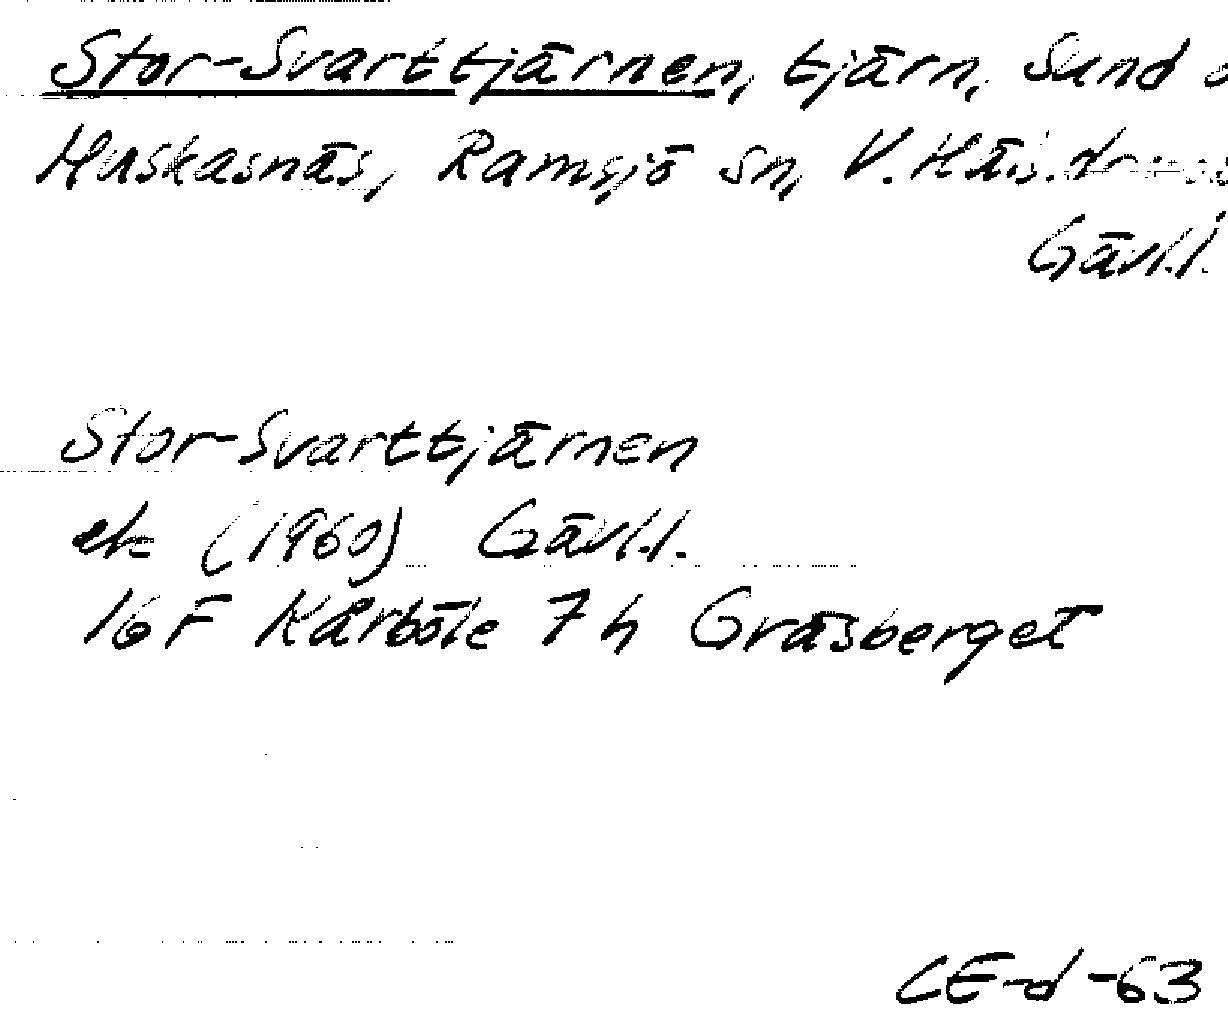 Stor-Svarttjärnen, tjärn, Sund o
Huskasnäs, Ramsjö sn, V. Häls.
Gävl.l.
Stor-Svarttjärnen
ek (1960) Gävl.l.
16 F Kårböle 7 h Gräsberget
CE-d-63